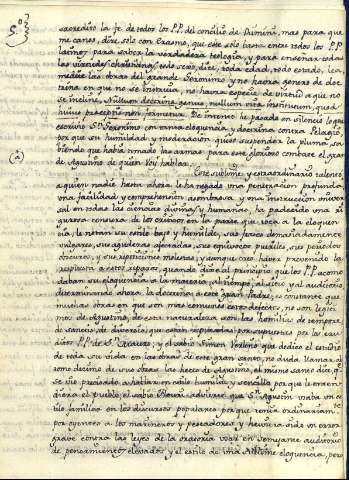 5.º
sacredito la fe de todos los P.P. del concilio de Rimini, mas para que
me canso, dice solo con Erasmo, que este solo basta entre todos los P.P.
latinos para saber la verdadera teologia, y para enseñar todas
las virtudes christianas; todo sexo, dice, toda edad, todo estado, lea,
medite las obras del grande Geronimo y no habra genero de doc
trina en que no se instruia, no habra especie de virtud a que no
se incline. Nullum doctrinæ genus, nullum vitæ institutum, quod
huius præceptis non formetur. De intento he pasado en silencio lo que
escribio Sn. Geronimo con tanta eloquencia, y doctrina contra Pelagio,
por que su humildad y moderacion quiso suspender la pluma, sa
biendo que habia tomado las armas para este glorioso combate el gran
de Agustino de quien voy hablar.
(a)
Este sublime y extraordinario talento,
a quien nadie hasta ahora le ha negado una penetracion profunda,
una facilidad y comprehension asombrosa y una instruccion univer
sal en todas las ciencias divinas y humanas, ha padecido una ri
gurosa censura de los criticos en la parte que toca a la eloquen
cia, le notan su estilo bajo y humilde, sus frases demasiadamente
vulgares, sus agudezas afectadas, sus equivocos pueriles, sus periodos
obscuros, y sus repeticiones molestas, y aunque creo haver prevenido la
respuesta a estos reparos, quando dixe al principio que los P.P. acomo
daban su eloquencia a la materia, al tiempo, al sitio y al auditorio
determinado ahora la docencia de este gran Padre; es constante que
muchas obras en que son mas comunes estos defectos, no son legiti
mas de Agustino, de esta naturaleza son las homilias de tempore,
de sanctis, de diversis, que estan reputadas por supuestas por los eru
ditos P.P. de Sn. Mauro, y el sabio Simon Verlino que dedico el estudio
de toda su vida en las obras de este gran santo, no duda llamar al
tomo decimo de sus obras las heces de Agustino, el mismo santo dice, q.e
se vio precisado a hablar en estilo humilde y sencillo para que le enten
diera el pueblo; el sabio advierte que Sn. Agustin usaba un es
tilo familiar en los discursos populares, por que tenia ordinariam.te
por oyentes a los marineros y pescadores y hevuria sido un error
grave contra las leyes de la oratoria usar en semejante auditorio
de pensamientos elevados y el estilo de una sublime eloquencia, pero